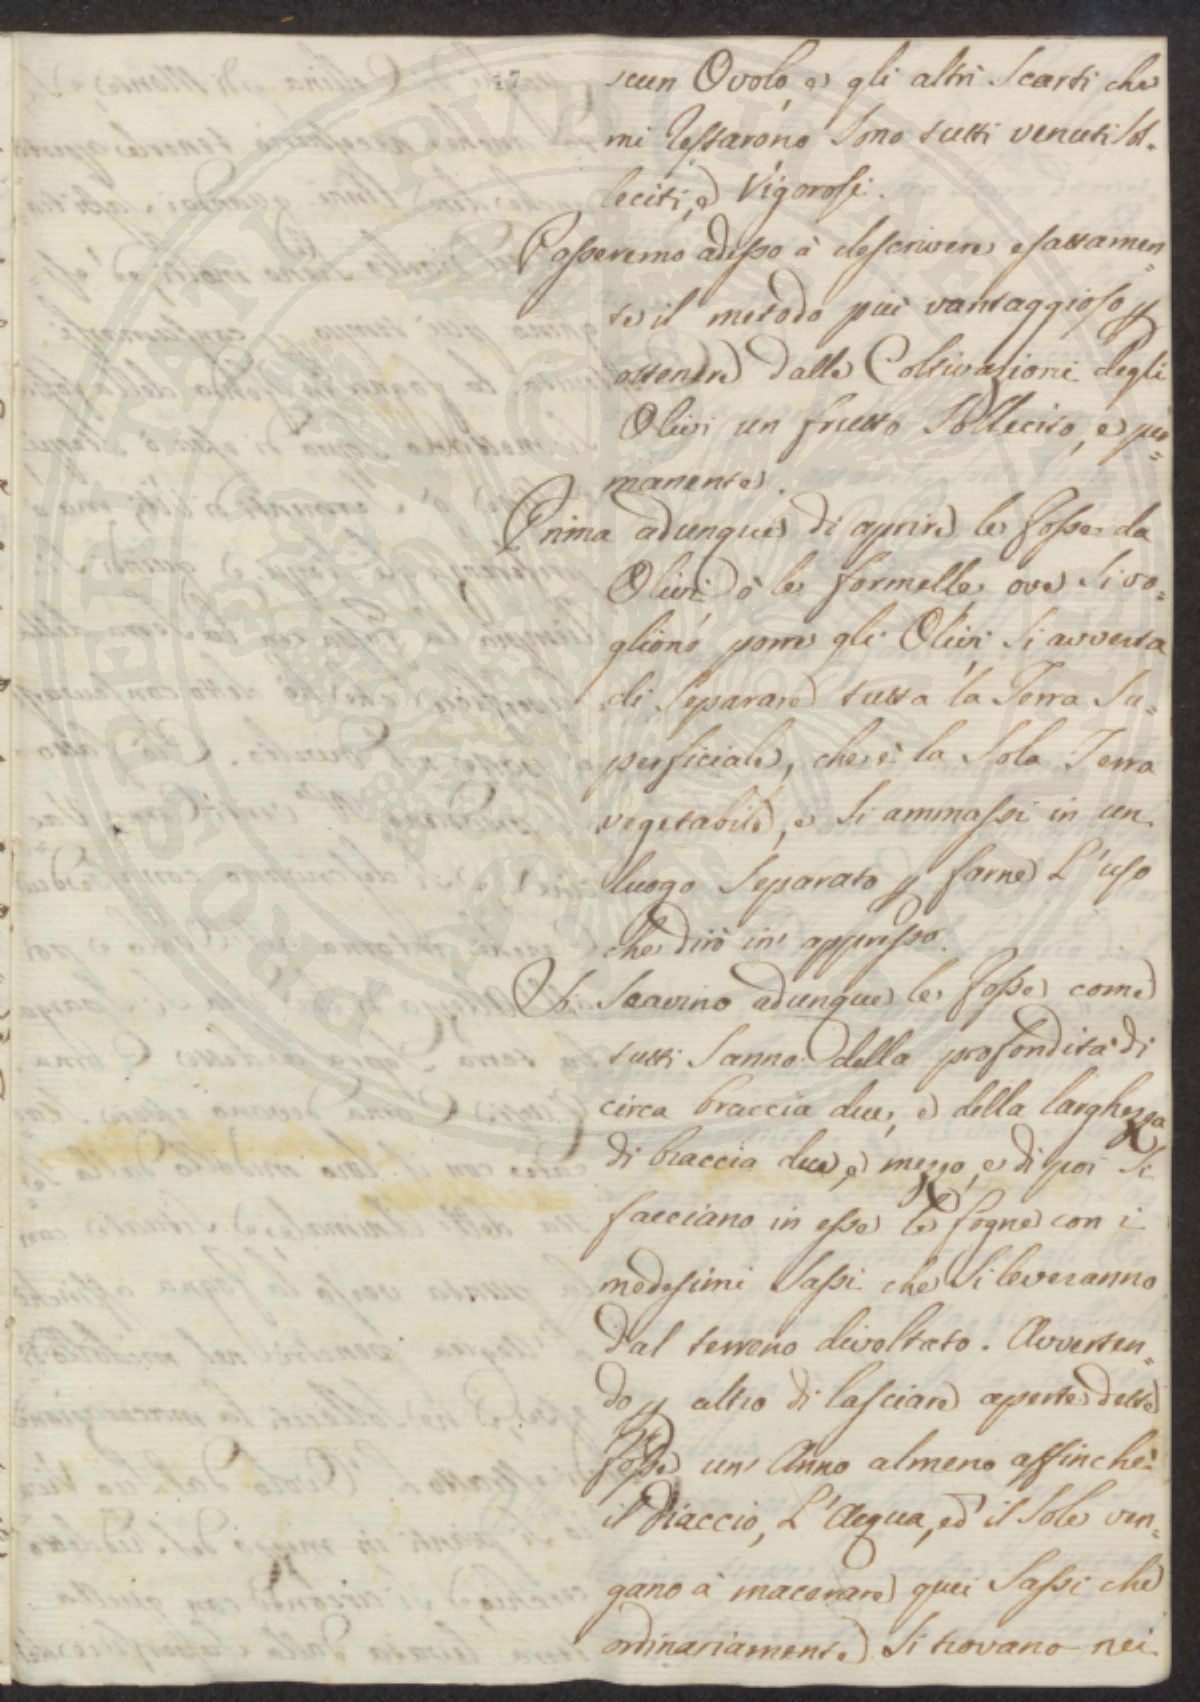 17
scun Ovolo, e gli altri Scarti che
mi restarono Sono tutti venuti Sol-
leciti, e Vigorosi.
Passeremo adesso à descrivere esattamen=
te il metodo più vantaggioso p
ottenere dalle Coltivazioni degli
Olivi un frutto Sollecito, e per=
manente.
Prima adunque di aprire le fosse da
Olivi ò le formelle ove Si vo=
gliono porre gli Olivi Si avverta
di Separare tutta la Terra Su=
perficiale, che è la Sola Terra
vegetabile, e Si ammassi in un
luogo Separato p farne L'uso
che dirò in appresso.
Si Scavino adunque le fosse come
tutti Sanno della profondità di
circa braccia due, e della larghezza
di braccia due, e mezzo, e di poi Si
facciano in esse le fogne con i
medesimi Sassi che Si leveranno
dal terreno divoltato. Avverten=
do p altro di lasciare aperte dette
fosse un' Anno almeno affinchè
il Diaccio, L'Acqua, ed il Sole ven=
gano à macerare quei Sassi che
ordinariamente Si trovano nei